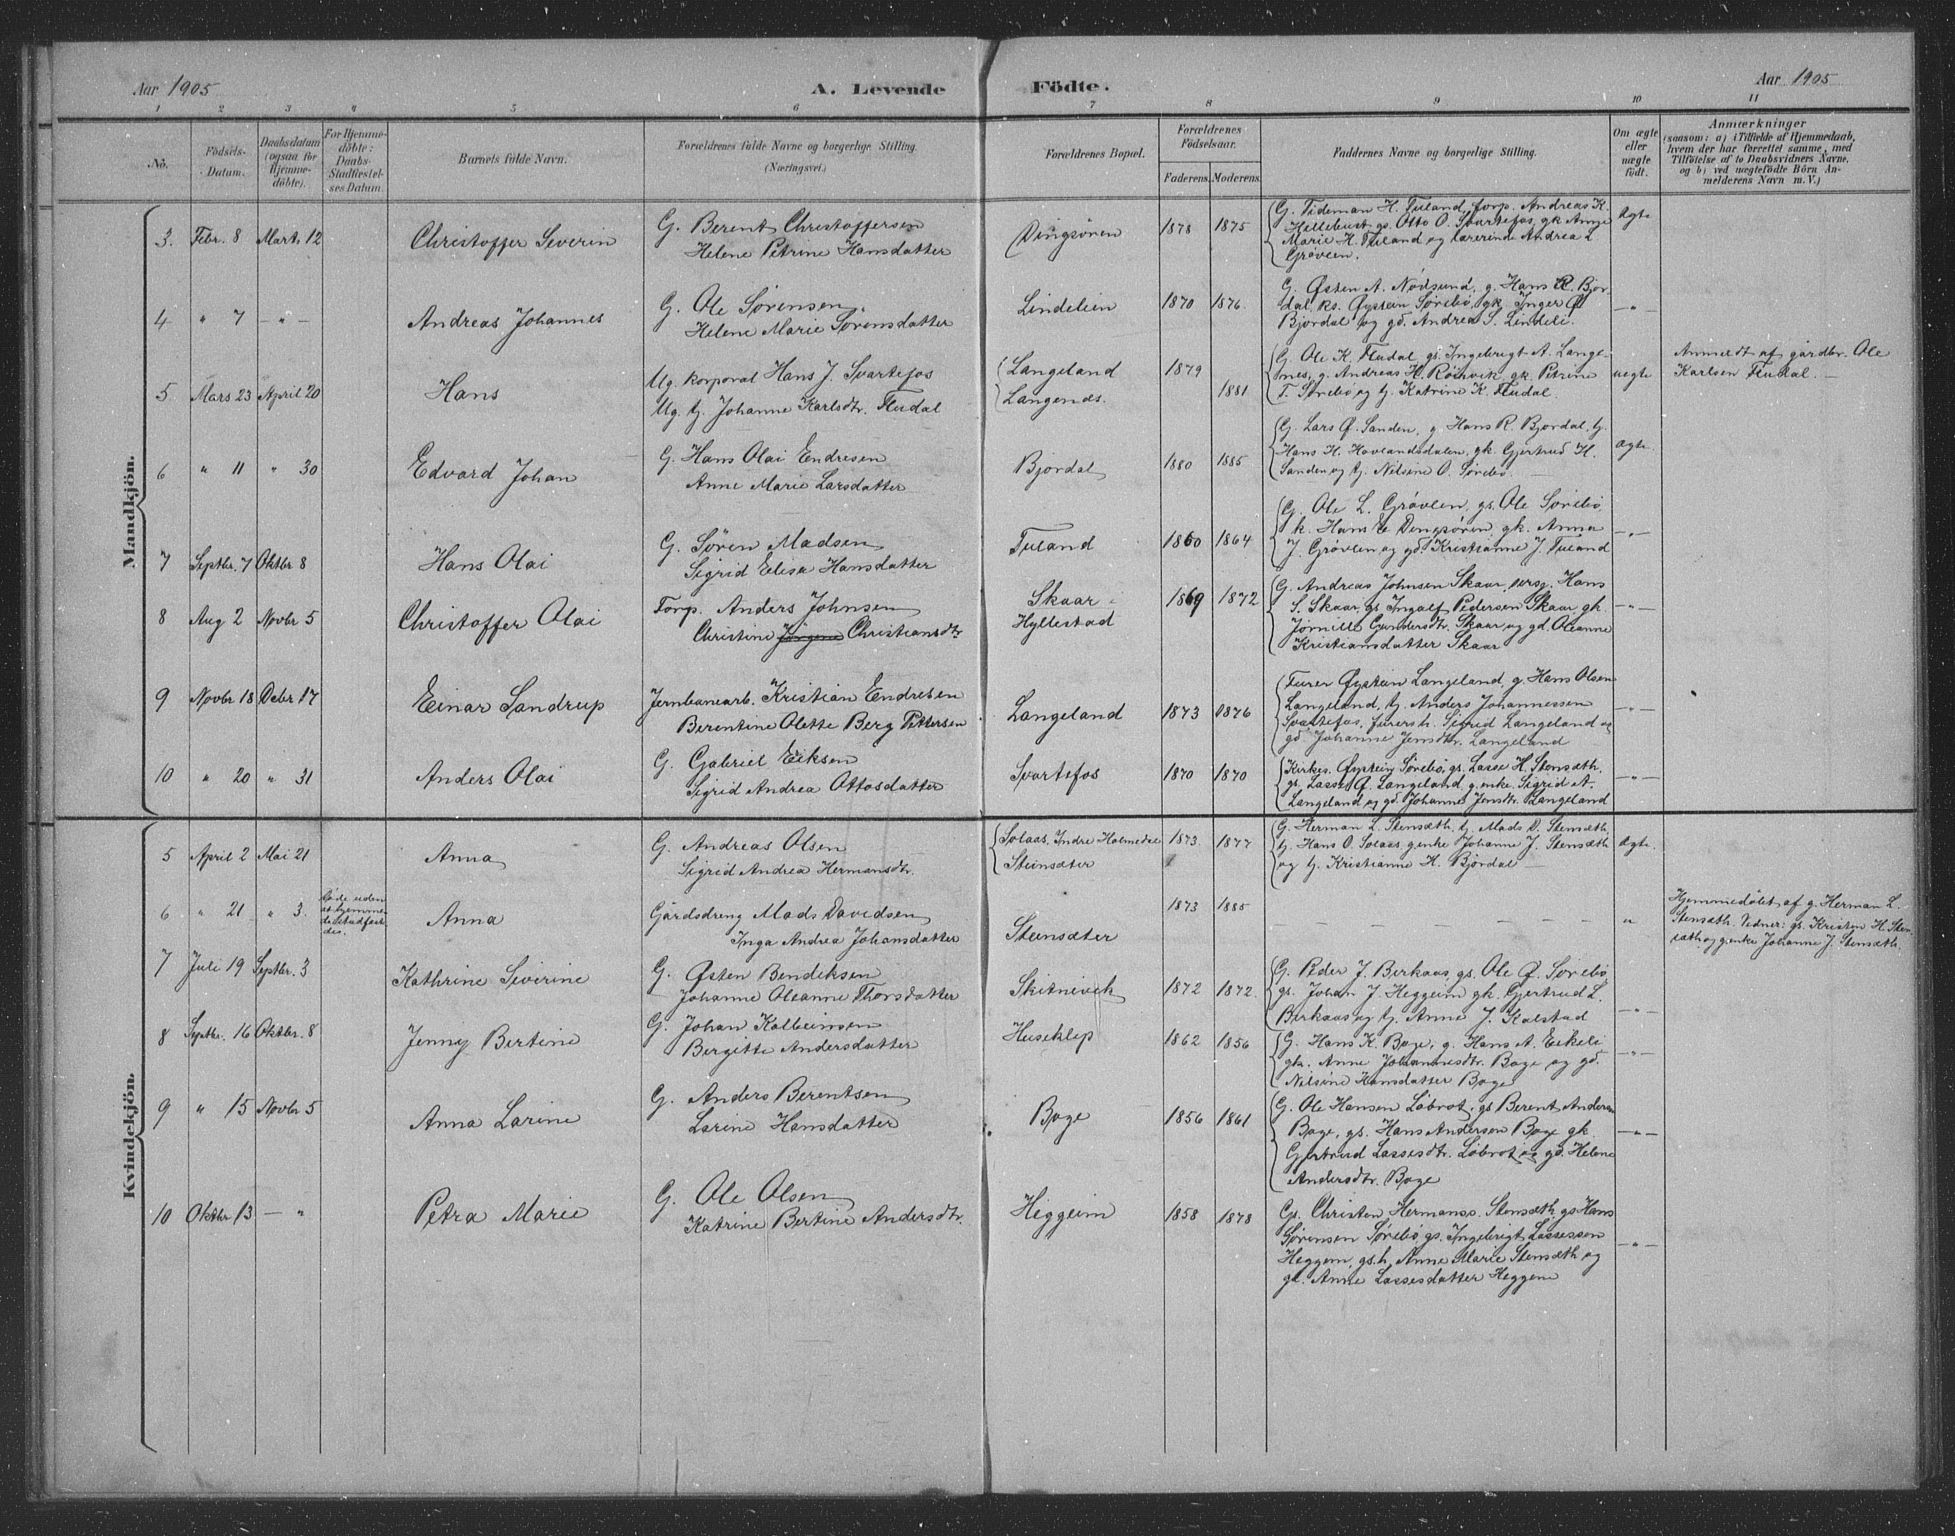 Aar 1905
A. Levende
Födte.
Aar 1905
1 2 3 4 5 6 7 8 9 10 11
No.
Födsels-
Datum.
Daabsdatum
(ogsaa for
Hjemme-
döbte).
For Hjemme-
döbte:
Daabs-
Stadfæstel-
ses Datum.
Barnets fulde Navn.
Forældrenes fulde Navne og borgerlige Stilling.
(Næringsvei.)
Forældrenes Bopæl.
Forældrenes
Födselsaar.
Faderens. Moderens.
Faddernes Navne og borgerlige Stilling.
Om ægte
eller
uægte
födt.
Anmærkninger
(saasom: a) i Tilfælde af Hjemmedaab,
hvem der har forrettet samme, med
Tilföielse af to Daabsvidners Navne,
og b) ved uægtefödte Börn An-
melderens Navn m. V.)
Mandkjön.
3. Febr. 8 Marts 12 Christoffer Severin
G. Berent Christoffersen
Helene Petrine Hansdatter
Dingsøren 1878 1875
G. Tideman H. Tuland, forp. Andreas K.
Hellebust gs. Otto O. Svartefos, gk Anne
Marie H. Tuland og lærerinde Andrea L
Grøvlen.
Ægte
4 " 7 — " — Andreas Johannes
G. Ole Sørensen
Helene Marie Sørensdatter
Lindelien 1870 1876
G. Østen A. Nødsund, g. Hans R. Bjor-
dal, ks. Øystein Sørebø, gk. Inger Ø
Bjordal og gd. Andrea S. Lindeli.
— " —
5 Mars 23 April 20 Hans
Ug. korporal Hans J. Svartefos
Ug. tj. Johanne Karlsdtr. Fludal
Langeland
Langenes.
1879 1881
G. Ole K. Fludal, gs. Ingebrigt A. Lange-
nes, g. Andreas H. Röisvik, gk. Petrine
T. Sørebø og tj. Katrine K. Fludal.
uegte
Anmeldt af gårdbr. Ole
Karlsen Fludal. —
6 " 11 " 30 Edvard Johan
G. Hans Olai Endresen
Anne Marie Larsdatter
Bjordal 1880 1885
G. Lars Ø. Sanden, g. Hans R. Bjordal, tj.
Hans H. Hovlandsdalen, gk. Gjertrud H.
Sanden og tj. Nilsine O. Sørebø.
Ægte.
7 Septbr. 7 Oktbr 8 Hans Olai
G. Søren Madsen
Sigrid Elise Hansdatter
Tuland 1860 1864
G. Ole L. Grøvlen, gs. Ole Sørebø,
k. Hans E Dingsøren, gk. Anna
J. Grøvlen og gd. Kristianne J. Tuland
— " —
8 Aug 2 Novbr 5 Christoffer Olai
Forp. Anders Johnsen
Christine Jörgine Christiansdtr
Skaar -
Hyllestad
1869 1872
G. Andreas Johnsen Skaar, versg. Hans
S. Skaar, gs Ingolf Pedersen Skaar, gk.
Jørnille Gundersdtr. Skaar, og gd. Oleanne
Kristiansdatter Skaar
— " —
9 Novbr 18 Debr 17 Einar Sandrup
Jernbanearb. Kristian Endresen
Berentine Olette Berg Pettersen
Langeland 1873 1876
Furer Øystein Langeland, g. Hans Olsen
Langeland, tj. Anders Johannessen
Svartefos, furersh. Sigrid Langeland og
gd Johanne Jensdtr. Langeland
— " —
10 " 20 " 31 Anders Olai
G. Gabriel Eiksen
Sigrid Andrea Ottosdatter
Svartefos 1870 1870
Kirkes. Øystein Sørebø, gs. Lasse H. Stensæth,
gs. Lasse Ø. Langeland, g.enke. Sigrid A.
Langeland og gd. Johanne Jensdtr. Langeland
— " —
Kvindekjön.
5 April 2 Mai 21 Anna
G. Andreas Olsen
Sigrid Andrea Hermansdtr.
Solaas, Indre Holmedal
Steinsæter
1873 1877
G. Herman L. Stensæth, tj. Mads D. Stensæth,
tj. Hans O. Solaas, g.enke Johanne J. Stensæth
og tj. Kristianne H. Bjordal —
Ægte.
6 " 21 " 3.
døde uden
at hjemme-
d. stadfæst-
des.
Anna
Gårdsdreng Mads Davidsen
Inga Andrea Johansdatter
Steinsæter 1873 1885
— — — — — "
Hjemmedøbt af g. Herman L.
Stensæth. Vidner: gs. Kristen H. Sten-
sæth og g.enke Johanne J. Stensæth.
7 Juli 19 Septbr. 3 Kathrine Siverine
G. Østen Bendiksen
Johanne Oleanne Thorsdatter
Skitnevik 1872 1872.
G. Peder J. Birkaas, gs. Ole Ø. Sørebø,
gs. Johan J. Heggeim gk. Gjertrud L.
Birkaas og tj. Anne J. Kalstad
— " —
8 Septbr. 16 Oktbr. 8 Jenny Bertine
G. Johan Kolbeinsen
Bergitte Andersdatter
Huseklep 1862 1856
G. Hans K. Bøge, g. Hans A. Eikeli
gk. Anne Johannesdtr. Bøge og gd.
Nilsine Hansdatter Bøge
— " —
9 " 15 Novbr 5 Anna Larine
G. Anders Berentsen
Larine Hansdatter
Bøge 1856 1861
G. Ole Hansen Løbrot, gs Berent Anders
Bøge, gs. Hans Andersen Bøge gk
Gjertrud Lassesdtr. Løbrot og gd. Helene
Andersdtr. Bøge
— " —
10 Oktbr 13 — " Petra Marie
G. Ole Olsen
Katrine Bertine Andersdtr.
Heggeim 1858 1878
Gs. Christen Hermanss. Stensæth gs Hans
Sørensen Sørebø gs. Ingebrigt Lassesson
Heggem, gs.h. Anne Marie Stensæth og
gd. Anne Lassesdatter Heggem
— " —